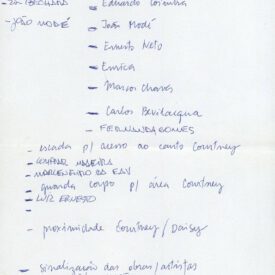 - Eduardo Coimbra
- JOÃO MODÉ
- João Modé
- Ernesto Neto
- Enrica
- Marcos Chaves
- Carlos Bevilacqua
- FERNANDA GOMES
- escada p/ acesso ao canto Courtney
- COMPRAR MADEIRA
- MARCENEIRO DA EAV
- guarda corpo p/ área Courtney
- LUIZ ERNESTO
-
- proximidade Courtney / Daisy
- sinalização das obras/artistas